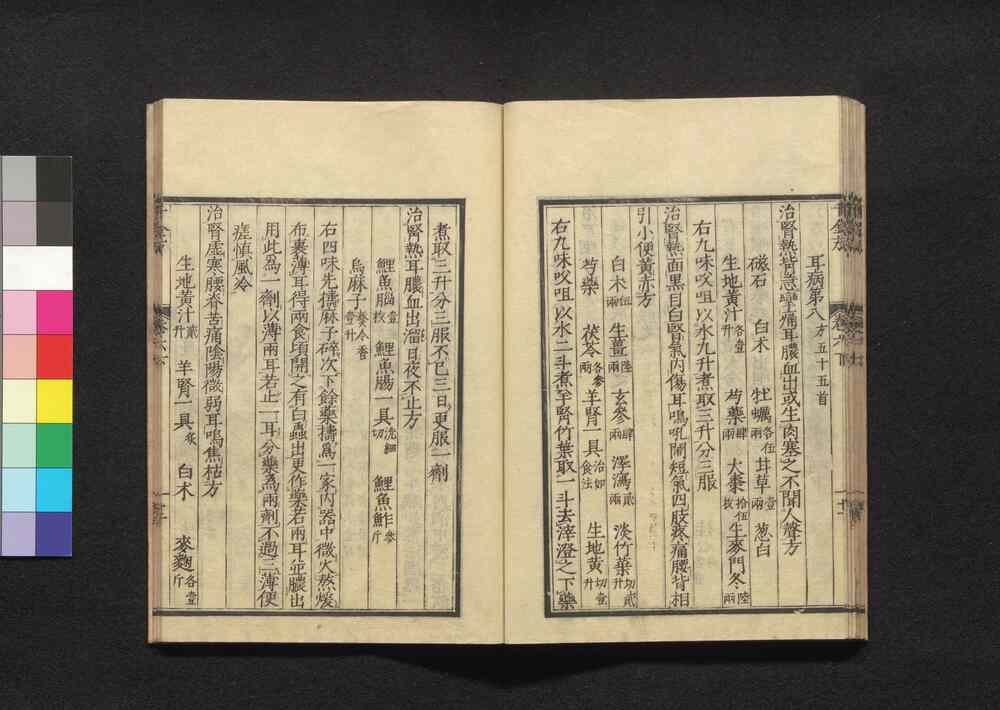 耳病第八 方五十五首
治腎熱背急攣痛耳膿血出或生肉塞之不聞人聲方
磁石 白朮 牡蠣各伍兩 甘草壹兩 葱白
生地黃汁各壹升 芍藥肆兩 大棗拾伍枚 生麥門冬陸兩
右九味㕮咀以水九升煮取三升分三服
治腎熱面黑目白腎氣內傷耳鳴吼鬧短氣四肢疼痛腰背相
引小便黃赤方
白朮伍兩 生薑陸兩 玄參肆兩 澤瀉貳兩 淡竹葉切貳升
芍藥 茯苓各參兩 羊腎一具治如食法 生地黃切壹升
右九味㕮咀以水二斗煮羊腎竹葉取一斗去滓澄之下藥
煮取三升分三服不已三日更服一劑
治腎熱耳膿血出溜日夜不止方
鯉魚腦壹枚 鯉魚腸一具洗細切 鯉魚鮓參斤
烏麻子熬令香壹升
右四味先擣麻子碎次下餘藥擣爲一家內器中微火熬煖
布裹薄耳得兩食頃開之有白蟲出更作藥若兩耳並膿出
用此爲一劑以薄兩耳若止一耳分藥爲兩劑不過三薄便
瘥慎風冷
治腎虛寒腰脊苦痛陰陽微弱耳鳴焦枯方
生地黃汁貳升 羊腎一具炙 白朮 麥麴各壹斤